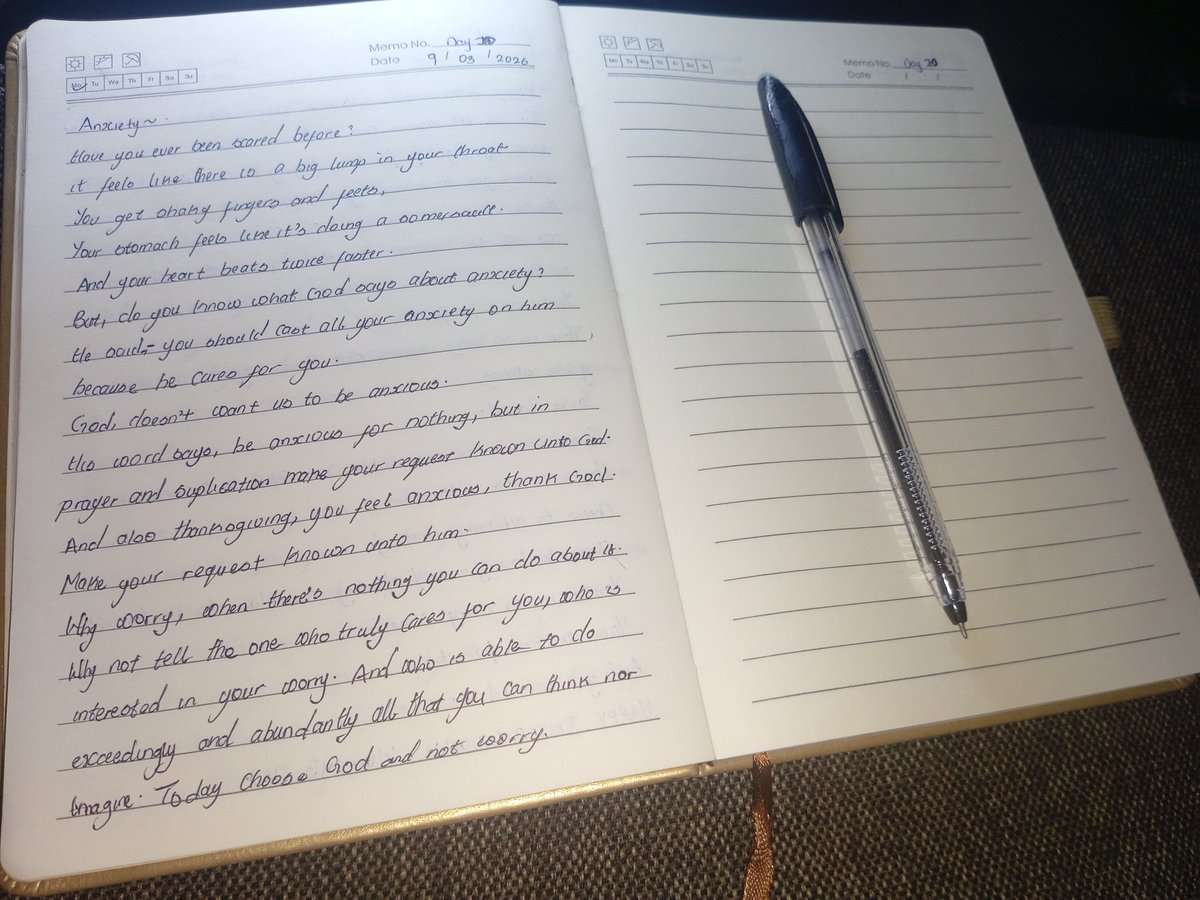 Memo No. Day 10
Date 9 / 03 / 2026
Mo Tu We Th Fr Sa Su
Anxiety~.
Have you ever been scared before?
it feels like there is a big lump in your throat
You get shaky fingers and feets,
Your stomach feels like it's doing a somersault.
And your heart beats twice faster.
But, do you know what God says about anxiety?
He said,- you should cast all your anxiety on him
because he cares for you.
God, doesn't want us to be anxious.
His word says, be anxious for nothing, but in
prayer and suplication make your request known unto God.
And also thanksgiving, you feel anxious, thank God.
Make your request known unto him.
Why worry, when there's nothing you can do about it.
Why not tell the one who truly cares for you, who is
interested in your worry. And who is able to do
exceedingly and abundantly all that you can think nor
Imagine. Today choose God and not worry.
Mo Tu We Th Fr Sa Su
Memo No. Day
Date / /